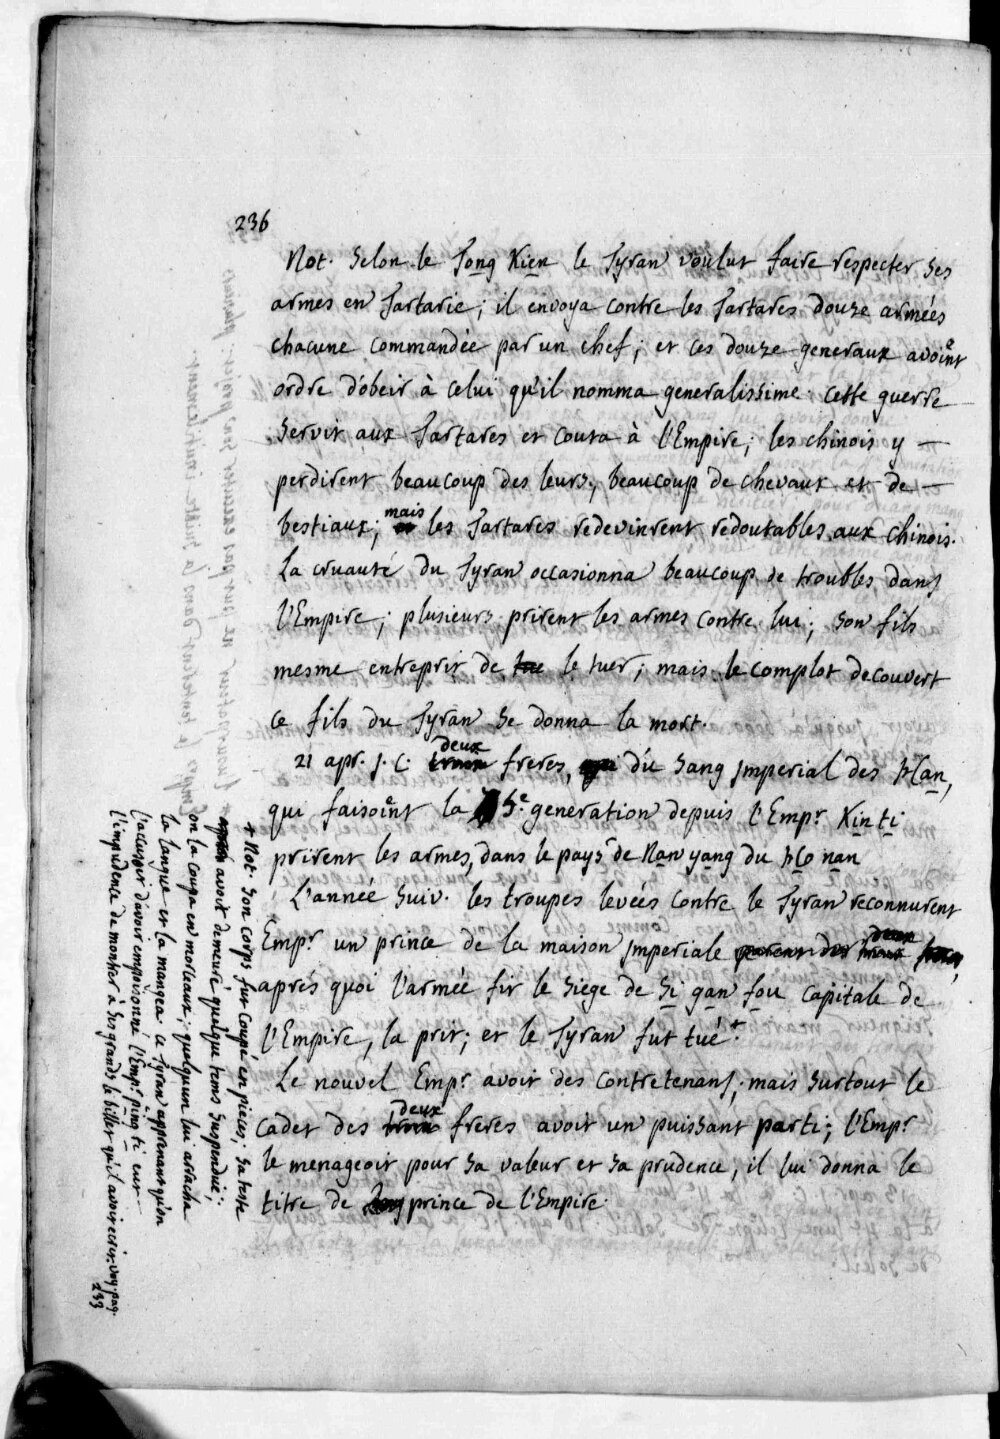 236
Not. Selon le Tong Kien le Tyran voulut faire respecter ses
armes en Tartarie; il envoya contre les Tartares douze armées
chacune commandée par un chef; et ces douze generaux avoient
ordre d'obeir à celui qu'il nomma generalissime. cette guerre
servit aux Tartares et couta à l'Empire; les chinois y —
perdirent beaucoup des leurs, beaucoup de chevaux et de —
bestiaux; mais les Tartares redevinrent redoutables aux chinois.
La cruauté du Tyran occasionna beaucoup de troubles dans
l'Empire; plusieurs prirent les armes contre lui; son fils
mesme entreprit de tue le tuer; mais le complot decouvert
ce fils du Tyran se donna la mort.
21 apr. J. C. deux freres, qui du sang Imperial des Han,
qui faisoient la 5e. generation depuis l'Empr. Kin ti
prirent les armes, dans le pays de Nan yang du Ho nan
L'année suiv. les troupes levées contre le Tyran reconnurent
Empr. un prince de la maison Imperiale parent des deux
aprés quoi l'armée fit le siege de Si gan fou capitale de
l'Empire, la prit; et le Tyran fut tué.+
Le nouvel Empr. avoit des contretenans; mais surtout le
cadet des deux freres avoit un puissant parti; l'Empr.
le menageoit pour sa valeur et sa prudence, il lui donna le
titre de prince de l'Empire.
+ Not. son corps fut coupé en pieces; sa teste
avoit demeuré quelque tems suspendue;
on la coupa en morceaux; quelqu'un lui arracha
la langue et la mangea. ce Tyran apprenant qu'on
l'accusoit d'avoir empoisonné l'Empr. ping ti eut
l'impudence de montrer à ses grands le billet qu'il avoit ecrit. voy. pag.
233